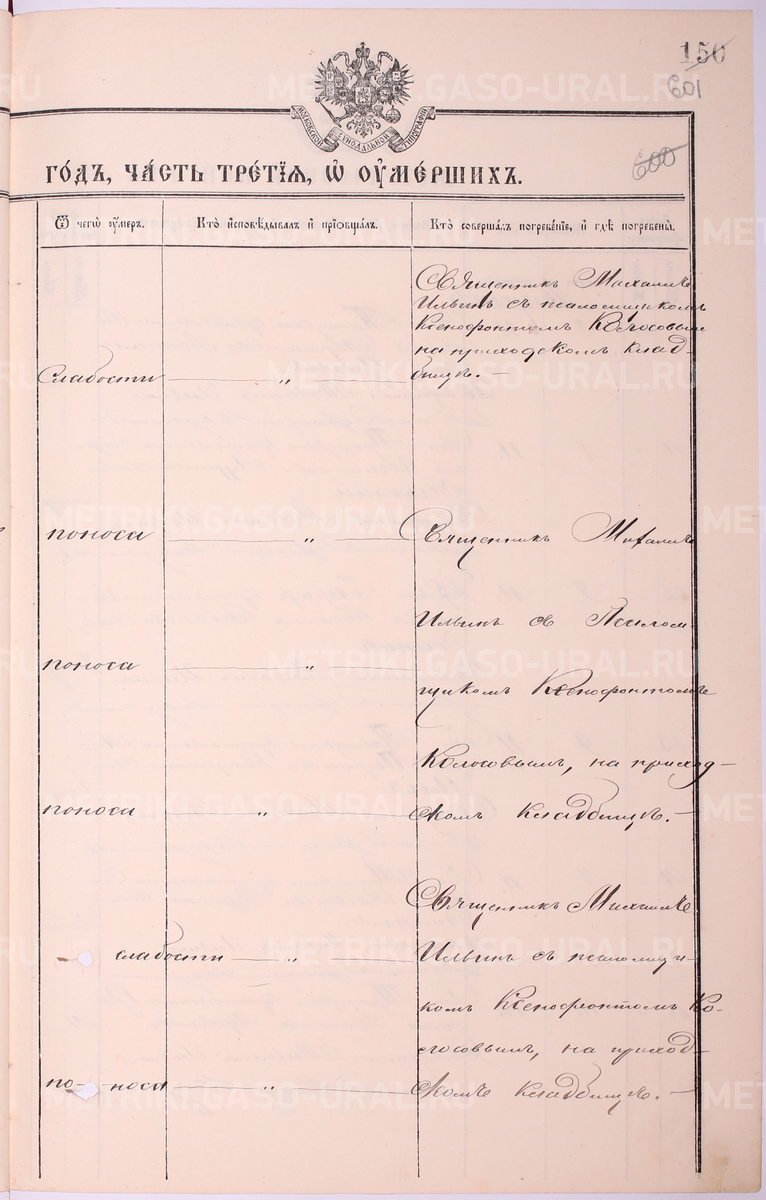 150
601
600
МОСКОВСКОЙ СѴНОДАЛЬНОЙ ТИПОГРАФІИ
го́дъ, ча́сть тре́тїѧ, ѡ҆ ᲂу҆ме́ршихъ.
Ѿ чегѡ̀ ᲂу҆́меръ.
Кто̀ и҆сповѣ́дывалъ и҆ прїѡбща́лъ.
Кто̀ соверша́лъ погребе́нїе, и҆ гдѣ̀ погребены̀.
Священникъ Михаилъ
Ильинъ съ псаломщикомъ
Ксенофонтомъ Колосовым
на приходскомъ клад-
Слабости — „ — бищѣ. —
поноса — „ — Священникъ Михаилъ
Ильинъ съ Псалом-
поноса — „
щикомъ Ксенофонтомъ
Колосовымъ, на приход-
поноса — „ — скомъ Кладбищѣ. —
Священникъ Михаилъ
слабости — „ — Ильинъ съ псаломщи-
комъ Ксенофонтомъ Ко-
лосовымъ, на приход-
по- носа — „ — скомъ кладбищѣ. —
METRIKI.GASO-URAL.RU